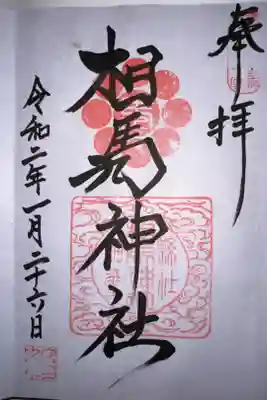 奉拝
相馬神社
令和二年一月二十六日